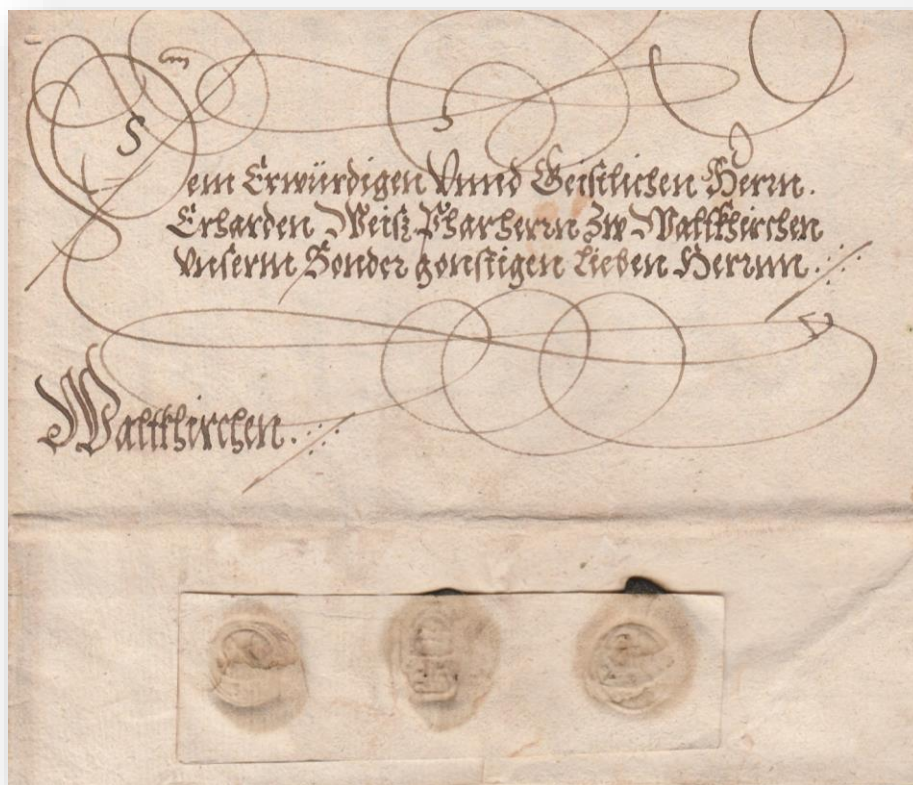 Dem Erwürdigen Vnnd Geistlichen Herrn.
Erharden Weiß Pharherrn Zw Waltkhirchen
Vnserm Sonder gonstigen Lieben Herrnn
Waltkhirchen.